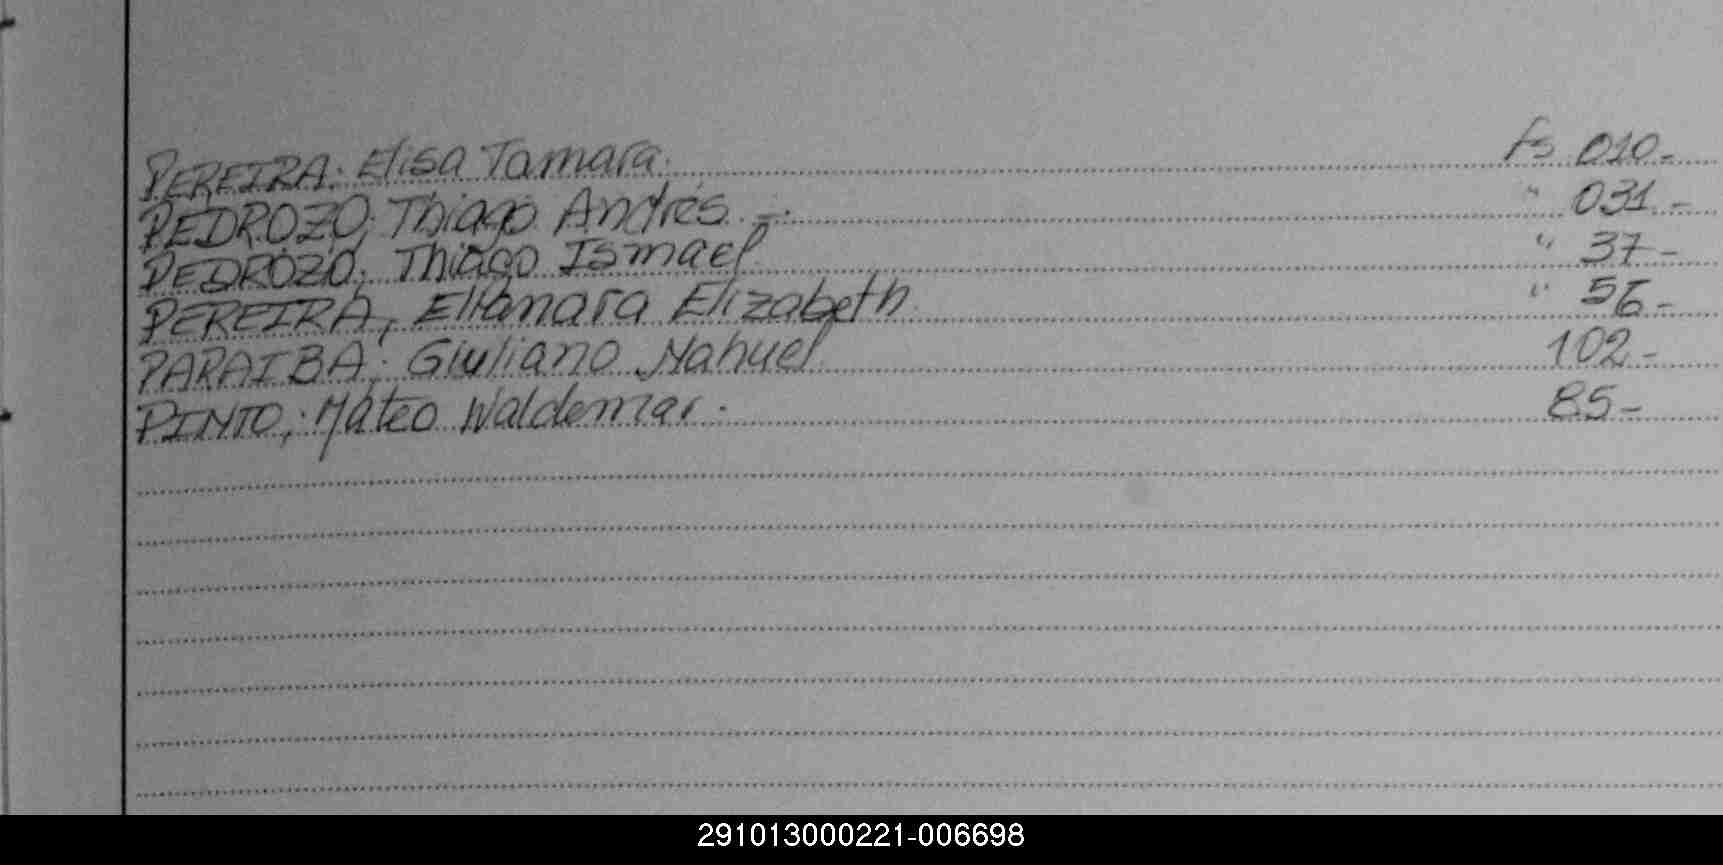 PEREIRA. Elisa Tamara. fs 010-
PEDROZO, Thiago Andrés.-. " 031-
PEDROZO, Thiago Ismael " 37-
PEREIRA, Elianara Elizabeth " 56-
PARAIBA, Giuliano Nahuel 102-
PINTO, Mateo Waldemar. 85-
291013000221-006698